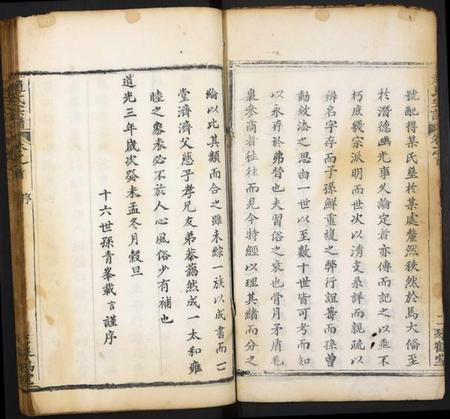 號配得某氏並於某處釐然秩然於焉大倫至
於潛德幽光事久論定者亦傳而記之以垂不
朽庶幾宗派明而世次以清支系詳而親疏以
辨名字存而子孫鮮重複之弊行誼著而孫曾
動效法之思由一世以至數十世皆可考而知
以永存於弗替也夫習俗之衰也骨月矛盾毛
裏參商者往往而見今特經以理其緒而分之
綸以比其類而合之雖未綜一族以成書而一
堂濟濟父慈子孝兄友弟恭藹然成一太和雍
睦之象未必不於人心風俗少有補也
道光三年歲次癸未孟冬月穀旦
十六世孫青峯載言謹序
趙氏宗譜
卷之首
序
二
琴鶴堂